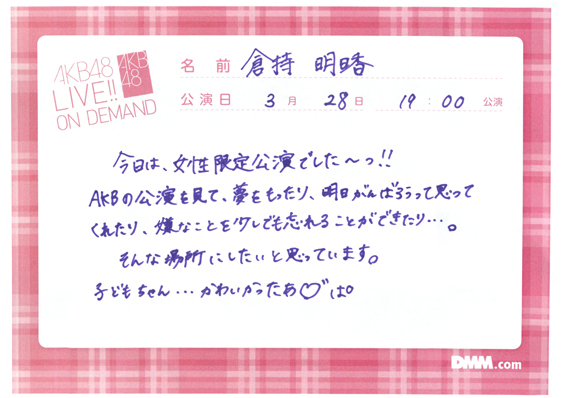 AKB48
LIVE!!
ON DEMAND
AKB
48
名 前 倉持 明日香
公演日 3月 28日 19:00 公演
今日は、女性限定公演でした〜っ!!
AKBの公演を見て、夢をもったり、明日がんばろうって思って
くれたり、嫌なことを少しでも忘れることができたり…。
そんな場所にしたいと思っています。
子どもちゃん…かわいかったあ♡
DMM.com